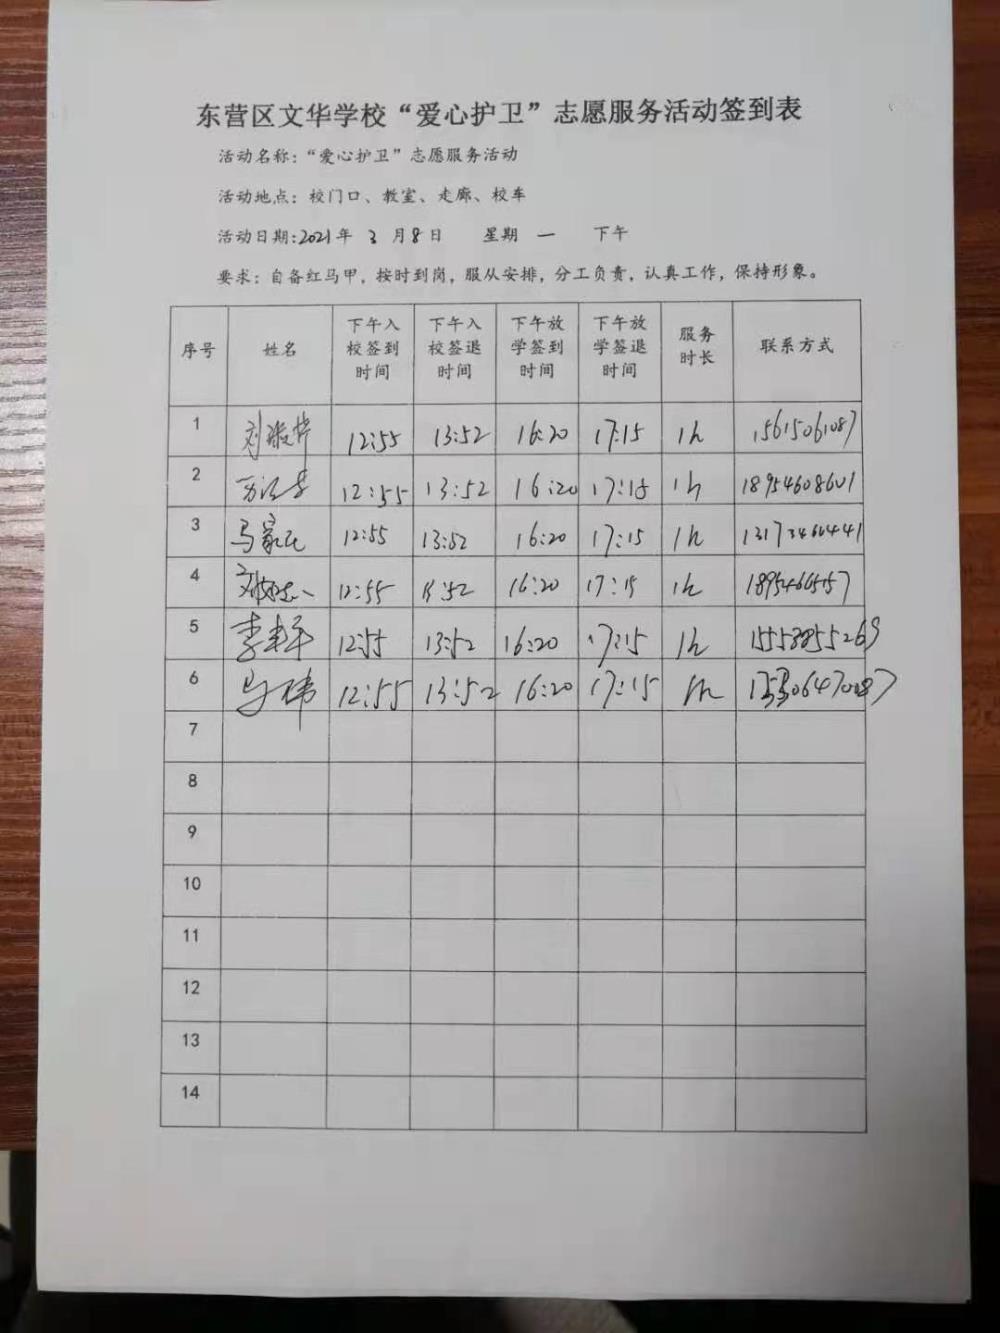 东营区文华学校“爱心护卫”志愿服务活动签到表
活动名称：“爱心护卫”志愿服务活动
活动地点：校门口、教室、走廊、校车
活动日期：2021年 3 月 8 日 星期 一 下午
要求：自备红马甲，按时到岗，服从安排，分工负责，认真工作，保持形象。
序号 姓名 下午入校签到时间 下午入校签退时间 下午放学签到时间 下午放学签退时间 服务时长 联系方式
1 12:55 13:52 16:20 17:15 1h 15615061087
2 12:55 13:52 16:20 17:15 1h 18954608601
3 12:55 13:52 16:20 17:15 1h
4 12:55 13:52 16:20 17:15 1h
5 12:55 13:52 16:20 17:15 1h
6 马伟 12:55 13:52 16:20 17:15 1h
7
8
9
10
11
12
13
14